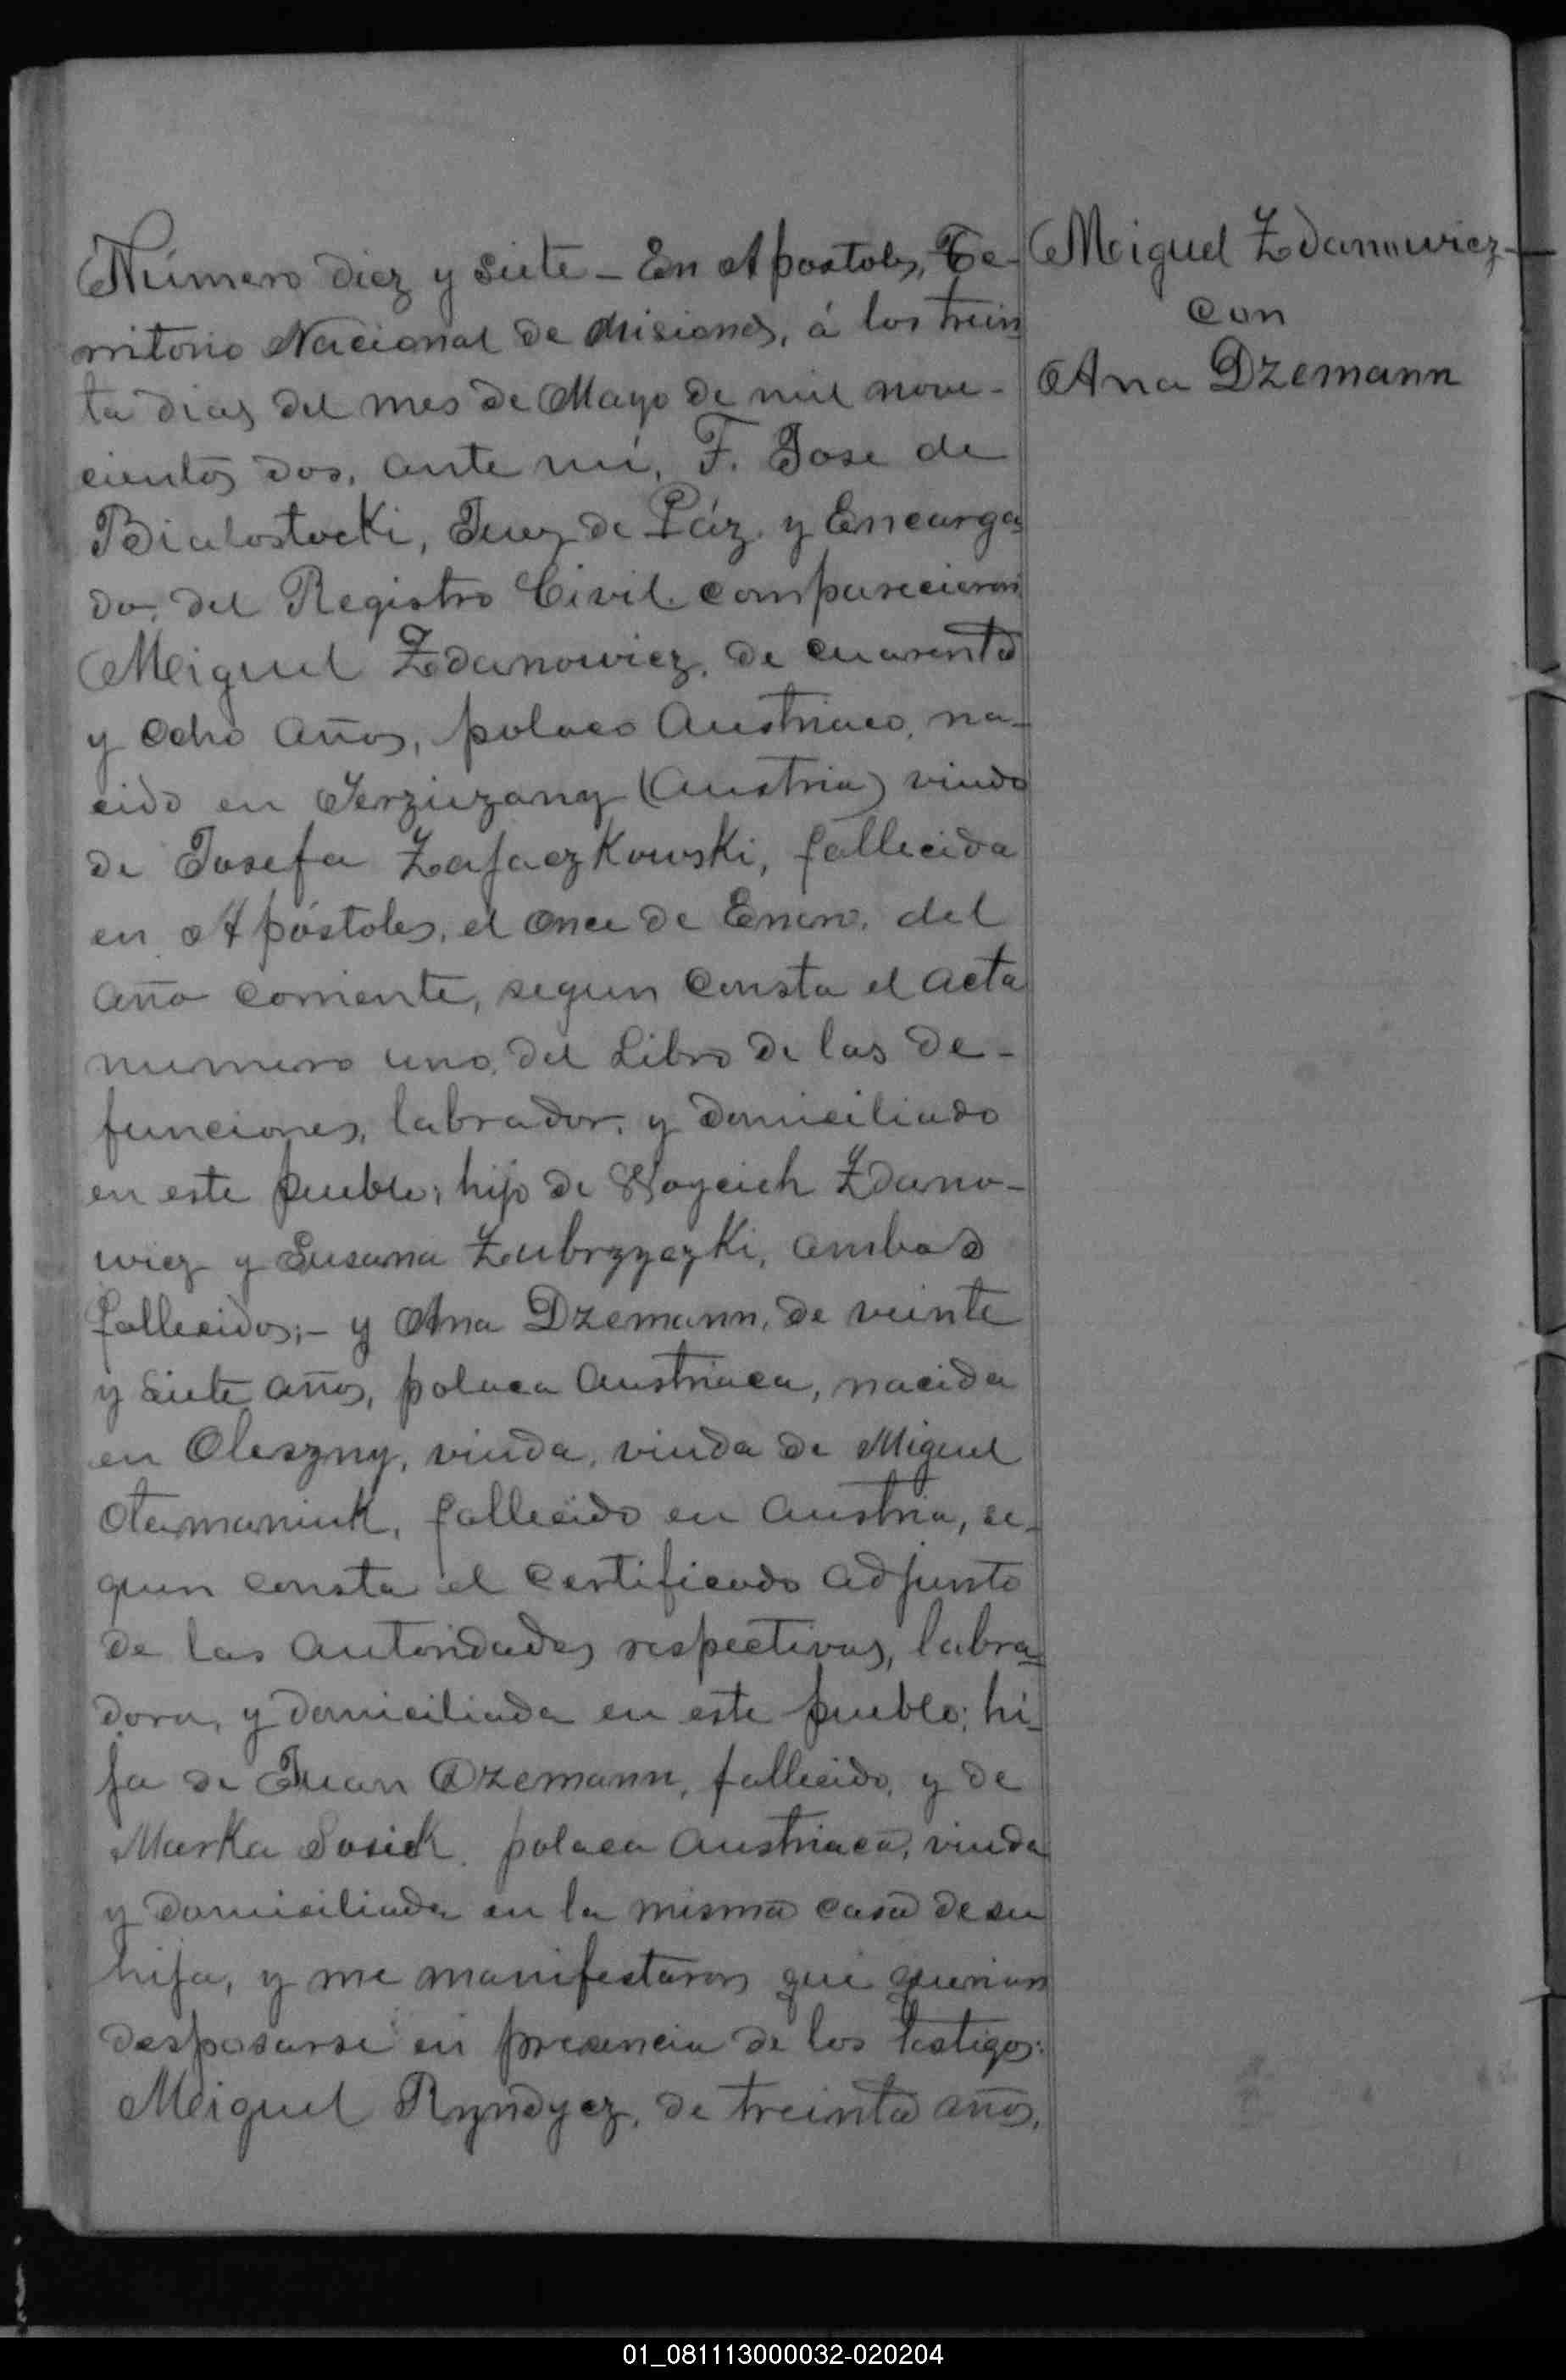 Número diez y siete - En Apostoles, Te-
rritorio Nacional de Misiones, á los trein
ta dias del mes de Mayo de mil nove-
cientos dos, ante mí, F. Jose de
Bialostocki, Juez de Páz y Encarga
do, del Registro Civil. comparecieron
Miguel Zdanowicz, de cuarenta
y ocho años, polaco Austriaco, na-
cido en Jerziezany (Austria) viudo
de Josefa Zajaczkowski, fallecida
en Apóstoles, el once de Enero, del
año corriente, segun consta el acta
numero uno, del Libro de las de-
funciones, labrador, y domiciliado
en este pueblo; hijo de Woyciech Zdano-
wicz y Susana Zubrzyczki, ambos
fallecidos; - y Ana Dzemann, de veinte
y siete años, polaca austriaca, nacida
en Oleszny, viuda, viuda de Miguel
Otamaniuk, fallecido en Austria, se-
gun consta el certificado adjunto
de las autoridades respectivas, labra=
dora, y domiciliada en este pueblo; hi-
ja de Juan Dzemann, fallecido, y de
Marka Sosick, polaca austriaca, viuda
y domiciliada en la misma casa de su
hija, y me manifestaron que querian
desposarse en presencia de los testigos:
Miguel Ryndycz, de treinta años,
Miguel Zdanowicz-
con
Ana Dzemann
01_081113000032-020204